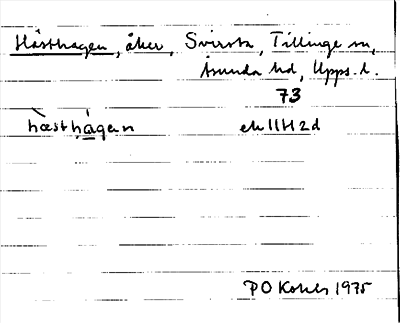 Hästhagen, åker, Svirsta, Tillinge sn,
Åsunda hd, Upps. l.
73
hæsthàgen ek 11H2d
PO Kohls 1975